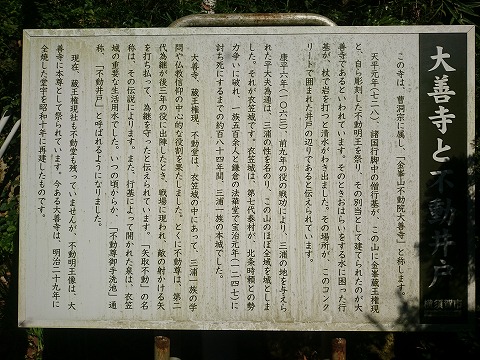 大善寺と不動井戸
この寺は、曹洞宗に属し、「金峯山不動院大善寺」と称します。
天平元年(七二八)諸国行脚中の僧行基が、この山に金峯蔵王権現
と、自ら彫刻した不動明王を祭り、その別当として建てられたのが大
善寺であるといわれています。そのときおはらいをする水に困った行
基が、杖で岩を打つと清水がわき出ました。その場所が、このコンク
リートで囲まれた井戸の辺りであると伝えられています。
康平六年(一〇六三)前九年の役の戦功により、三浦の地を与えら
れた平大夫為通は、三浦の姓を名のり、この山のほぼ全域を城としま
した。それが衣笠城です。衣笠城は、第七代泰村が、北条時頼との勢
力争いに破れ、一族五百余人と鎌倉の法華堂で宝治元年(一二四七)に
討ち死にするまでの約百八十四年間、三浦一族の本城でした。
大善寺、蔵王権現、不動堂は、衣笠城の中にあって、三浦一族の学
問や仏教信仰の中心的な役割を果たしました。とくに不動尊は、第二
代為継が後三年の役に出陣したとき、戦場に現われ、敵の射かける矢
を打ち払って、為継を守ったと伝えられています。「矢取不動」の名
称は、その伝説によります。また、行基によって開かれた泉は、衣笠
城の重要な生活用水でした。いつの頃からか、「不動尊御手洗池」通
称、「不動井戸」と呼ばれるようになりました。
現在、蔵王権現社も不動堂も残っていませんが、不動明王像は、大
善寺に本尊として祭られています。なお、この丘にある大善寺は、明治二十九年に
全焼した堂宇を昭和十年に再建したものです。
横須賀市